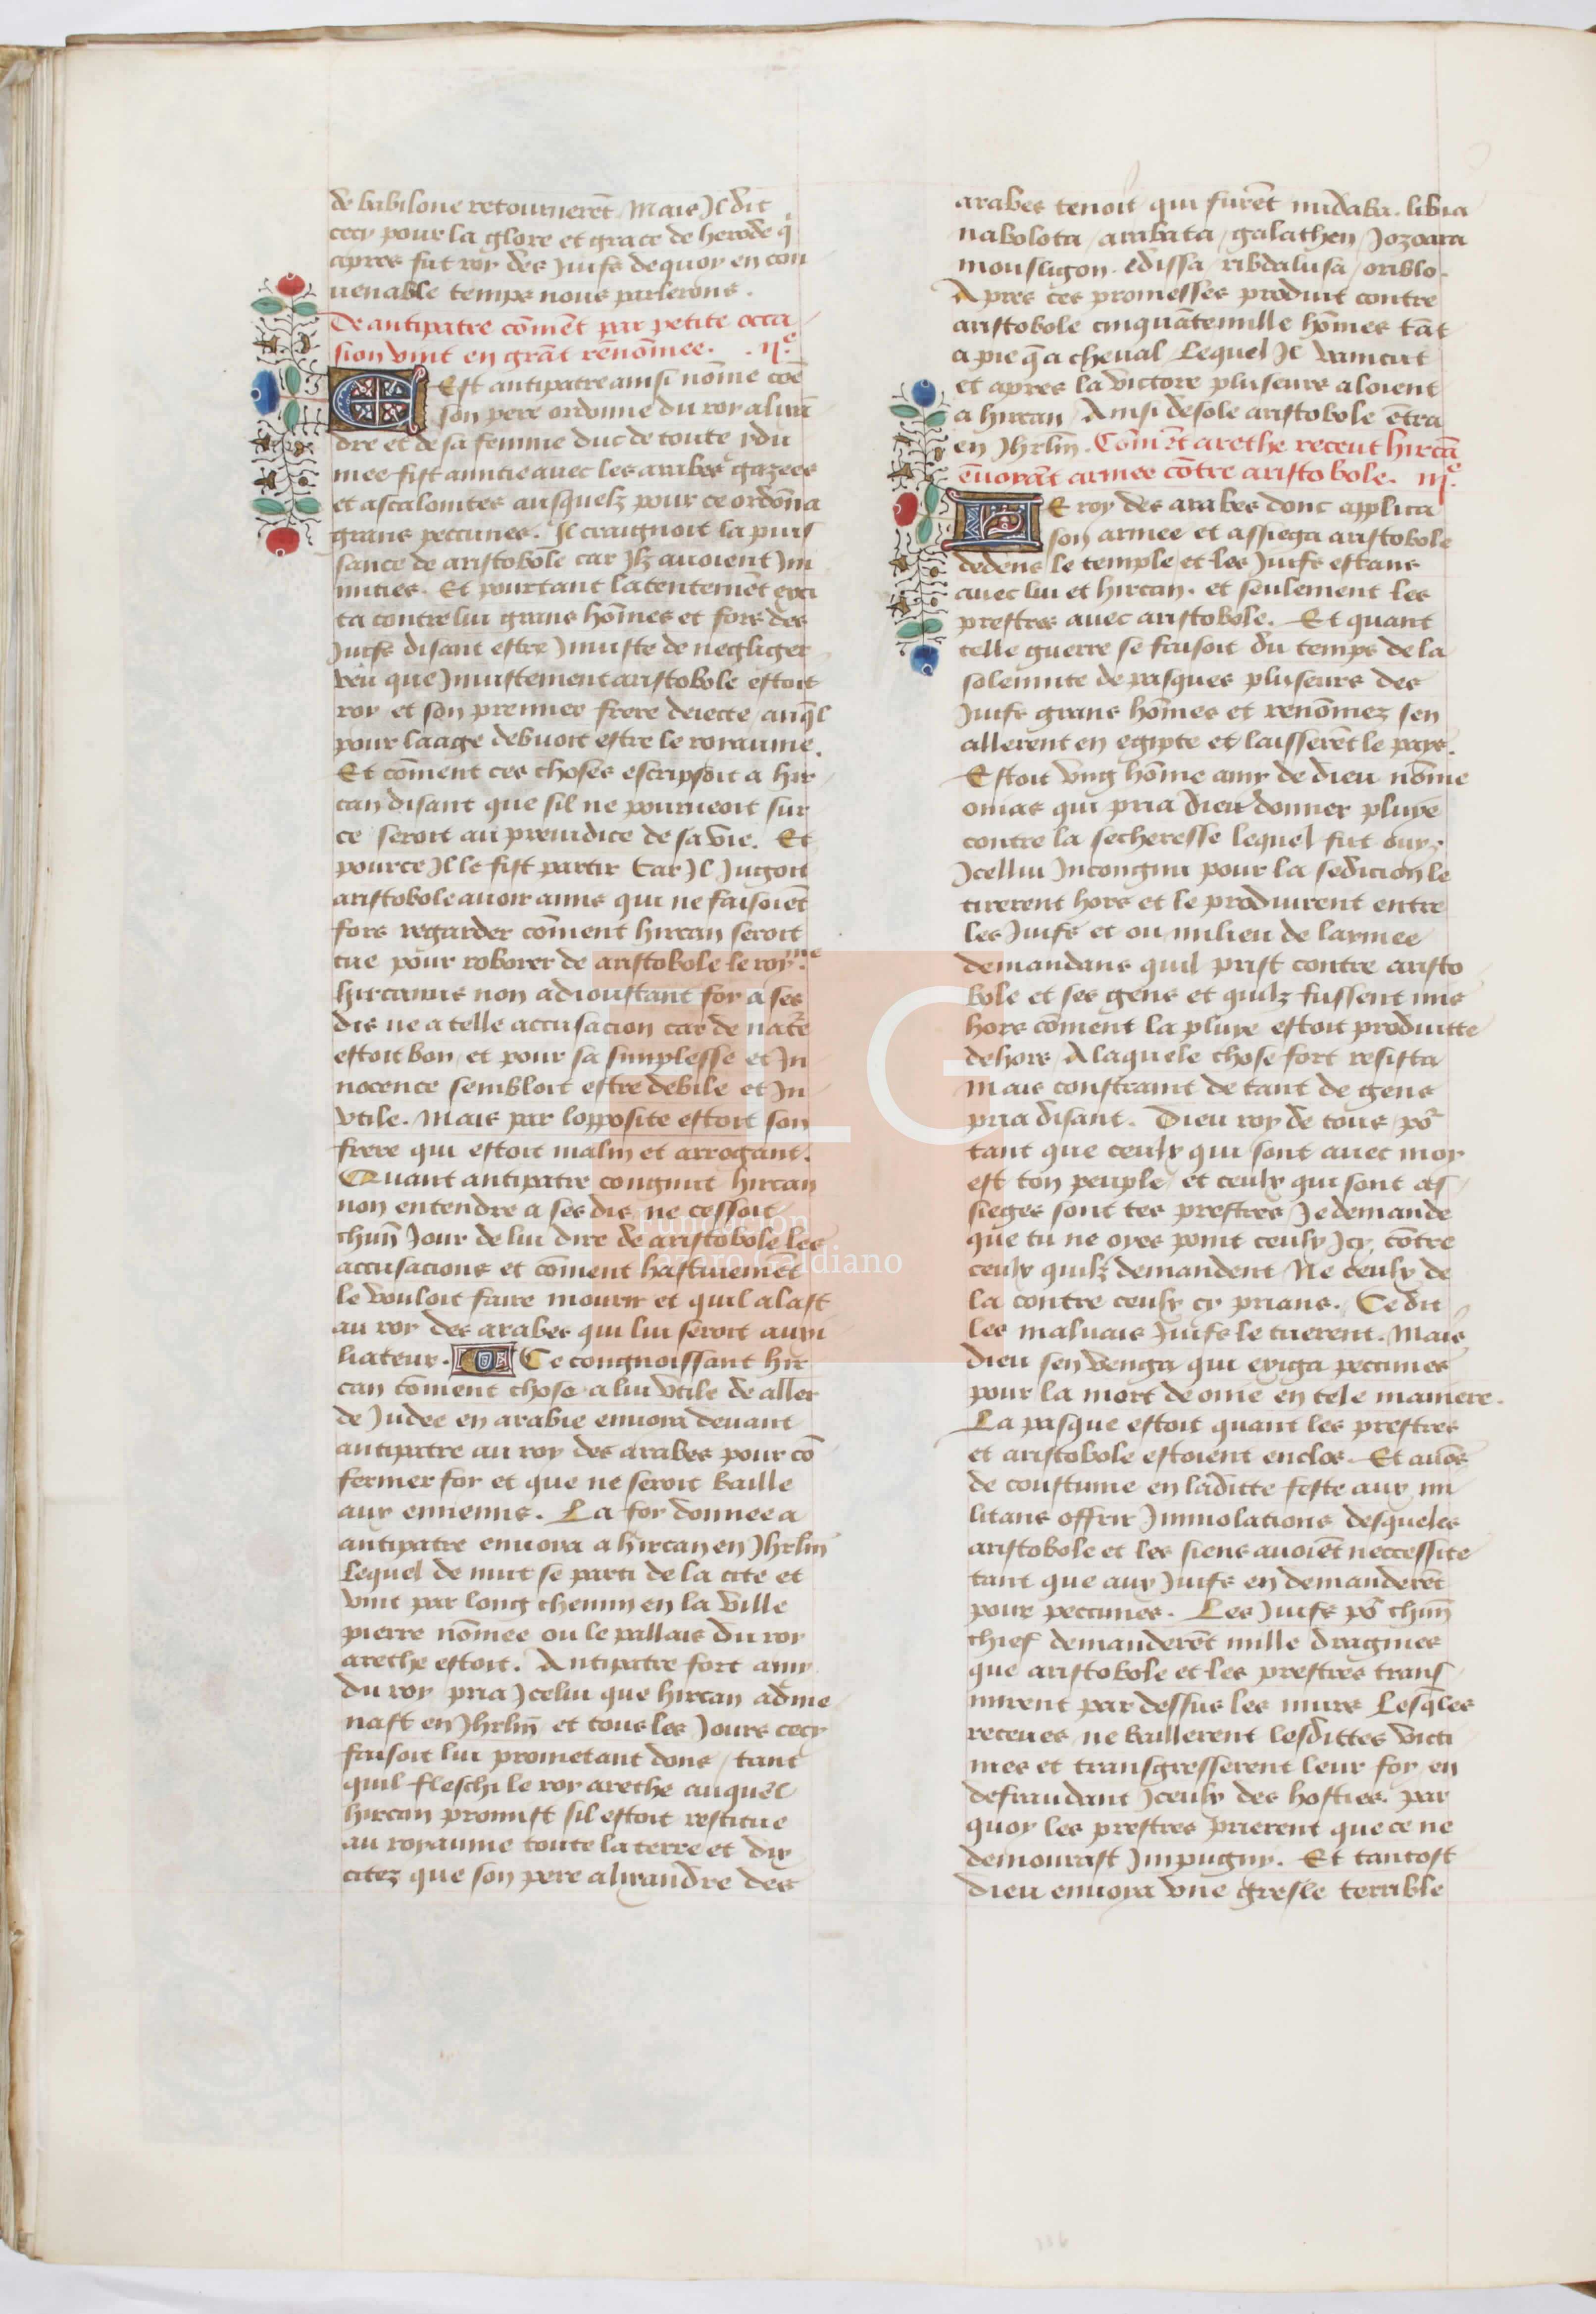 de babilone retournerēt Mais Il dit
cecy pour la glore et grace de herode q̄
apres fut roy des Juifs de quoy en con
uenable temps nous parlerons .
De antipatre cōmēt par petite occa
sion vint en grāt rēnōmee. .ijͤ.
CEst antipatre ainsi nōme cōe
son pere ordonne du roy alixā
dre et de sa femme duc de toute ydu
mee fist amitie auec les arabes gazees
et ascalonites ausquelz pour ce ordōna
grans peccunes. Il craignoit la puis
sance de aristobole car Ilz auoient Ini
mities. Et pourtant latentemēt exci
ta contre lui grans hōmes et fors des
Juifs disant estre Iniuste de negliger
veu que Iniustement aristobole estoit
roy et son premier frere deiecte auq̄l
pour laage debuoit estre le royaume.
Et cōment ces choses escripsoit a hir
can disant que sil ne pourueoit sur
ce seroit au preiudice de sa vie. Et
pource Il le fist partir Car Il Jugoit
aristobole auoir amis qui ne faisoiēt
fors regarder cōment hircan seroit
tue pour roborer de aristobole le royᵐᵉ.
hircanus non adioustant foy a ses
dis ne a telle accusacion car de natr̄e
estoit bon et pour sa simplesse et In
nocence sembloit estre debile et In
vtile. Mais par lopposite estoit son
frere qui estoit malin et arrogant.
Quant antipatre congnut hircan
non entendre a ses dis ne cessoit
chūn Jour de lui dire de aristobole les
accusacions et cōment hastiuemēt
le vouloit faire mourir et quil alast
au roy des arabes qui lui seroit auxi
liateur. Ce congnoissant hir
can cōment chose a lui vtile de aller
de Judee en arabie enuoya deuant
antipatre au roy des arabes pour cō
fermer foy et que ne seroit baille
aux ennemis. La foy donnee a
antipatre enuoya a hircan en Jhrlm̄
Lequel de nuit se parti de la cite et
vint par long chemin en la ville
pierre nōmee ou le pallais du roy
arethe estoit. Antipatre fort amy
du roy pria Icelui que hircan admē
nast en Jhrlm̄ et tous les Jours cecy
faisoit lui prometant dons / tant
quil fleschi le roy arethe auquel
hircan promist sil estoit restitue
au royaume toute la terre et dix
citez que son pere alixandre des
arabes tenoit qui furēt midaba. libia
nabolota / arabata / galathen / Jozoara
mousligon. edissa / ribdalusa / oriblo.
Apres ces promesses produit contre
aristobole cinquātemille hōmes tāt
a pie q̄ a cheual Lequel Il vainquit
et apres la victore pluseurs aloient
a hircan / Ainsi desole aristobole ētra
en Jhrlm̄. Cōmēt arethe receut hircā
ēnoyāt armee cōtre aristobole. iijͤ.
LE roy des arabes donc applica
son armee et assiega aristobole
dedens le temple et les Juifs estans
auec lui et hircan. et seulement les
prestres auec aristobole. Et quant
telle guerre se faisoit du temps de la
solemnite de pasques pluseurs des
Juifs grans hōmes et renōmez sen
allerent en egipte et laisserēt le pays.
Estoit vng hōme amy de dieu nōme
omias qui pria dieu donner pluye
contre la secheresse lequel fut ouy.
Icellui Incongnu pour la sedicion le
tirerent hors et le produirent entre
les Juifs et ou milieu de larmee
demandans quil prist contre aristo
bole et ses gens et quilz fussent mis
hors cōment la pluye estoit produitte
dehors / A laquele chose fort resista
Mais constraint de tant de gens
pria disant. Dieu roy de tous pōr
tant que ceulx qui sont auec moy
est ton peuple / et ceulx qui sont as
sieges sont tes prestres / Je demande
que tu ne oyes point ceulx Icy cōtre
ceulx quilz demandent / Ne ceulx de
la contre ceulx cy prians. Ce dit
les maluais Juifs le tuerent. Mais
dieu sen venga qui exiga peccunies
pour la mort de omie en tele maniere.
La pasque estoit quant les prestres
et aristobole estoient enclos. Et auōs
de coustume en laditte feste aux mi
litans offrir Immolations desqueles
aristobole et les siens auoiēt neccessite
tant que aux Juifs en demanderēt
pour peccunes. Les Juifs pōr chūn
chief demanderēt mille dragmes
que aristobole et les prestres trans
mirent par dessus les murs Lesq̄les
receues ne baillerent lesdittes victi
mes et transgresserent leur foy en
defraudant Iceulx des hosties. par
quoy les prestres prierent que ce ne
demourast Impugny. Et tantost
dieu enuoya vne gresle terrible
LG
Fundación
Lázaro Galdiano